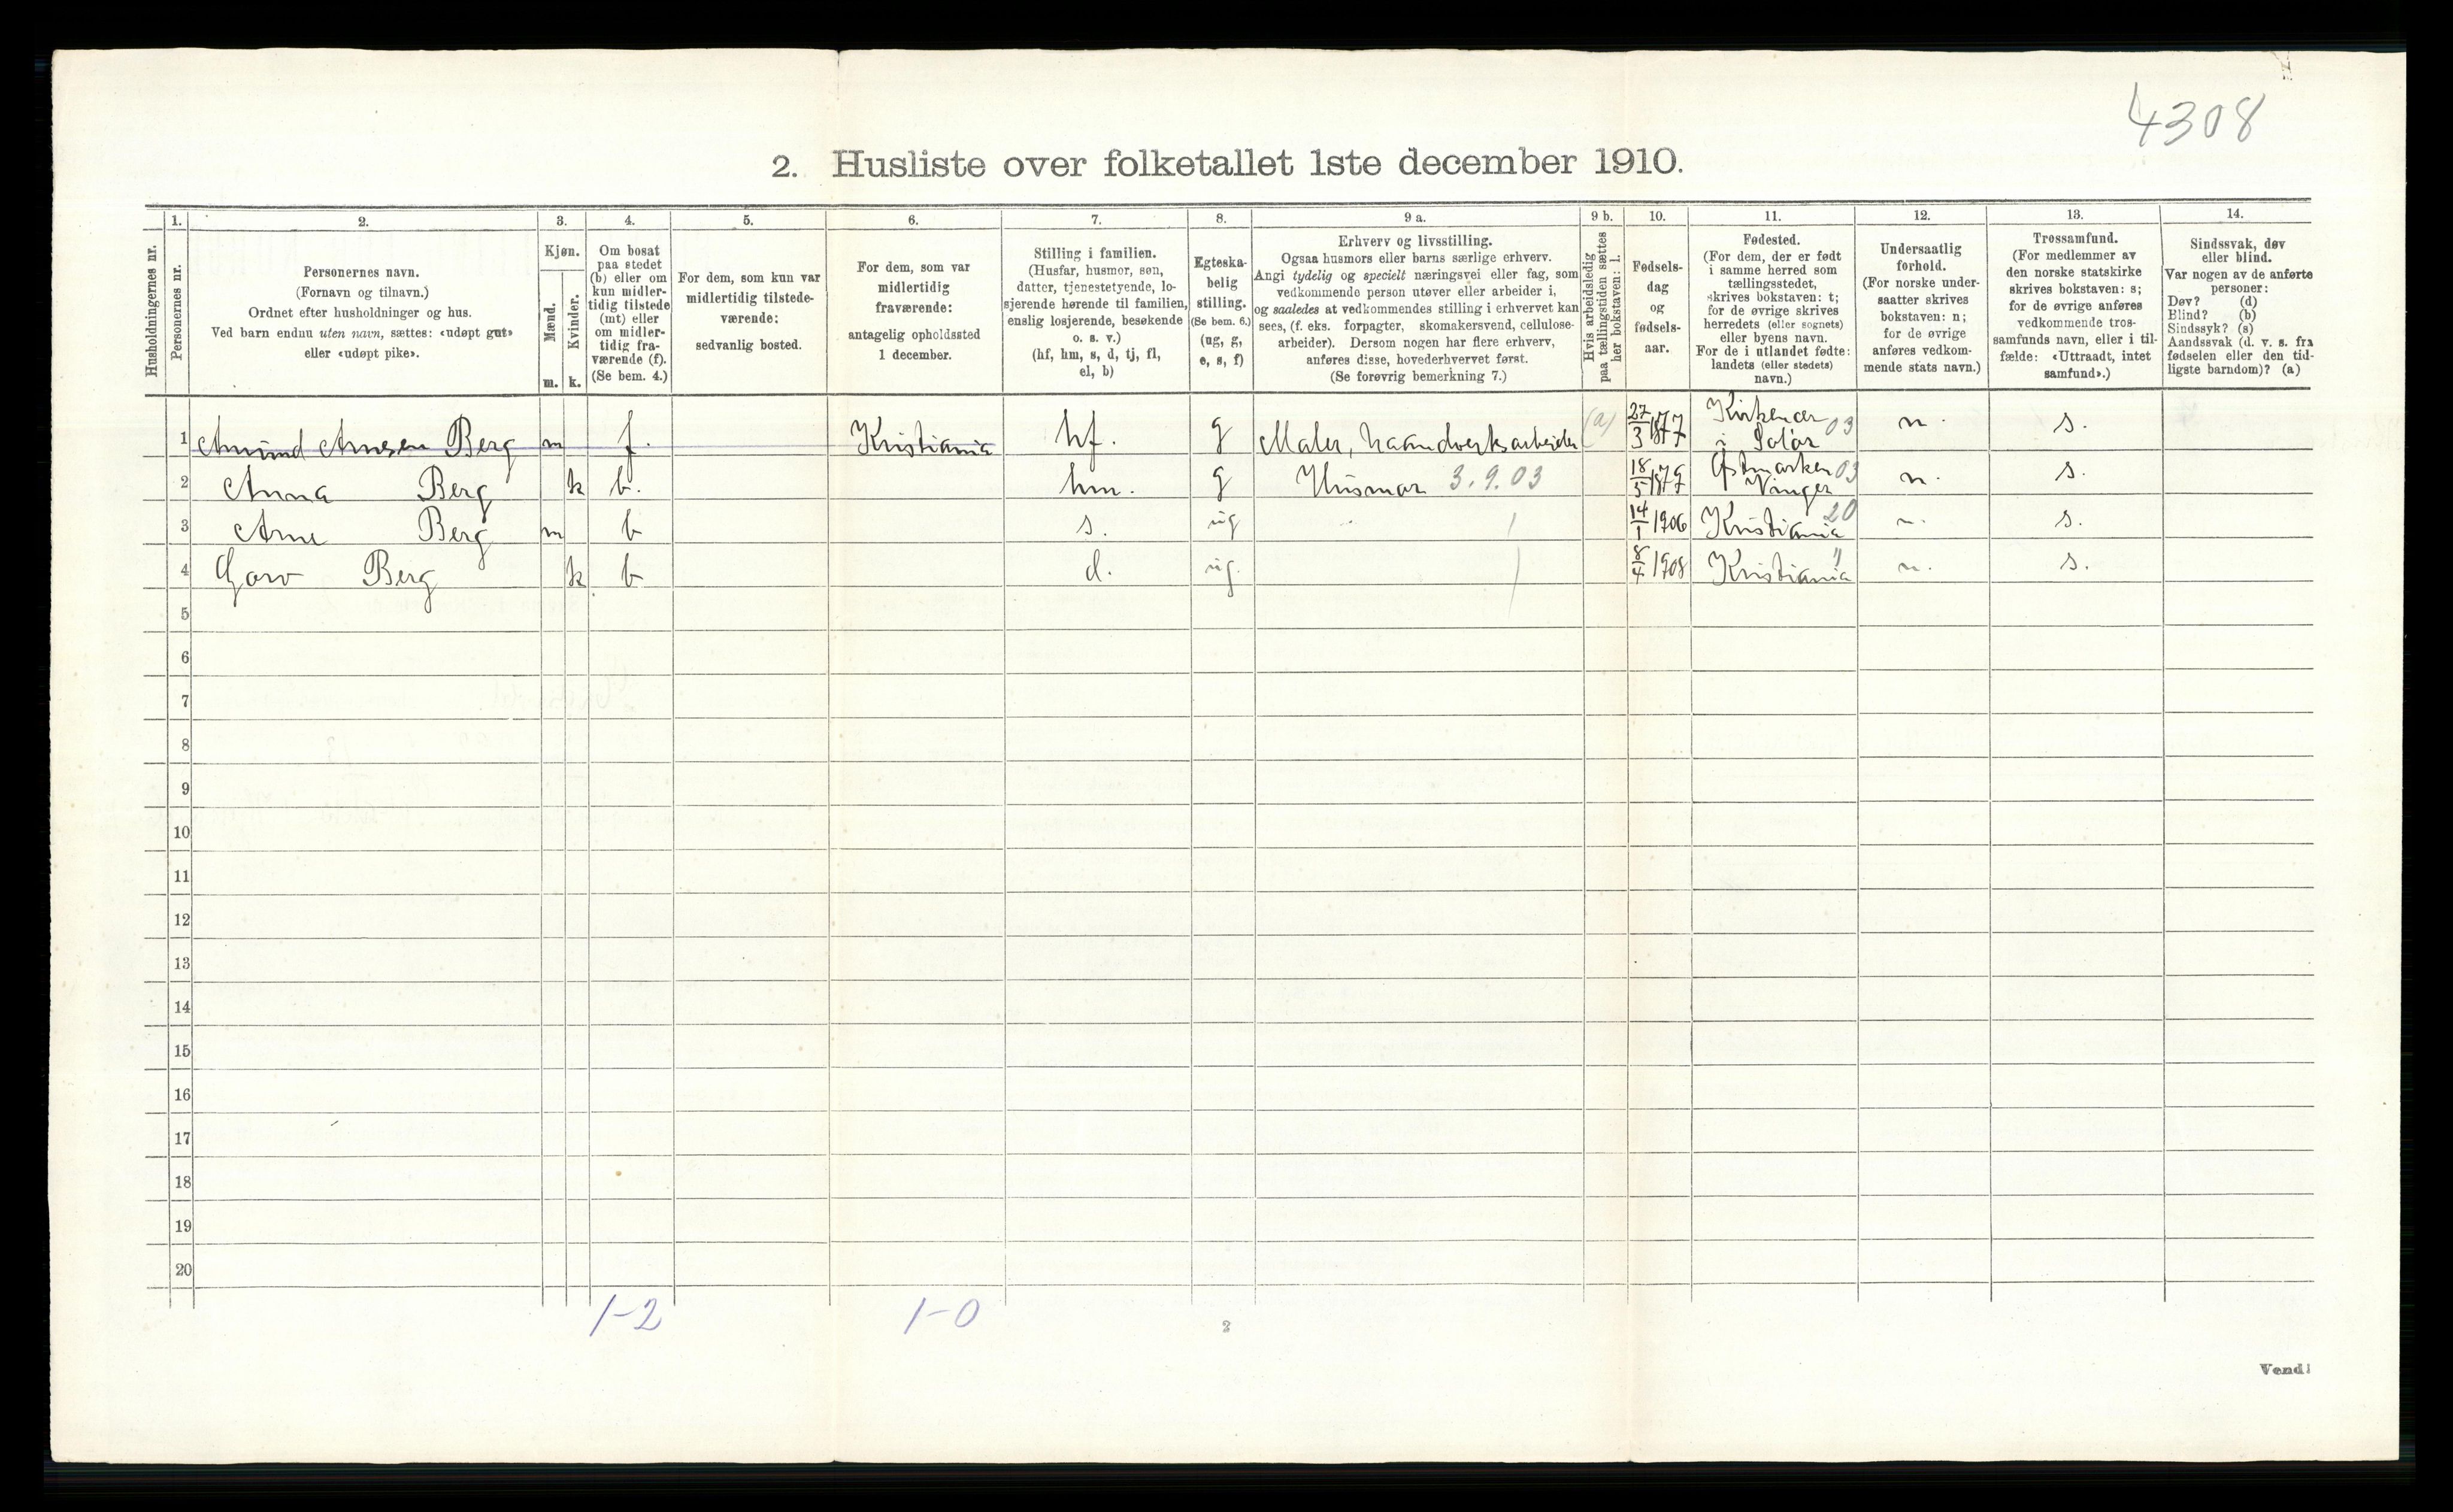 4308
2. Husliste over folketallet 1ste december 1910.
Husholdningernes nr.
1.
Personernes nr.
2.
Personernes navn.
(Fornavn og tilnavn.)
Ordnet efter husholdninger og hus.
Ved barn endnu uten navn, sættes: «udøpt gut»
eller «udøpt pike».
3.
Kjøn.
Mænd.
m.
Kvinder.
k.
4.
Om bosat
paa stedet
(b) eller om
kun midler-
tidig tilstede
(mt) eller
om midler-
tidig fra-
værende (f).
(Se bem. 4.)
5.
For dem, som kun var
midlertidig tilstede-
værende:
sedvanlig bosted.
6.
For dem, som var
midlertidig
fraværende:
antagelig opholdssted
1 december.
7.
Stilling i familien.
(Husfar, husmor, søn,
datter, tjenestetyende, lo-
sjerende hørende til familien,
enslig losjerende, besøkende
o. s. v.)
(hf, hm, s, d, tj, fl,
el, b)
8.
Egteska-
belig
stilling.
(Se bem. 6.)
(ug, g,
e, s, f)
9 a.
Erhverv og livsstilling.
Ogsaa husmors eller barns særlige erhverv.
Angi tydelig og specielt næringsvei eller fag, som
vedkommende person utøver eller arbeider i,
og saaledes at vedkommendes stilling i erhvervet kan
sees, (f. eks. forpagter, skomakersvend, cellulose-
arbeider). Dersom nogen har flere erhverv,
anføres disse, hovederhvervet først.
(Se forøvrig bemerkning 7.)
9 b.
Hvis arbeidsledig
paa tællingstiden sættes
her bokstaven: l.
10.
Fødsels-
dag
og
fødsels-
aar.
11.
Fødested.
(For dem, der er født
i samme herred som
tællingsstedet,
skrives bokstaven: t;
for de øvrige skrives
herredets (eller sognets)
eller byens navn.
For de i utlandet fødte:
landets (eller stedets)
navn.)
12.
Undersaatlig
forhold.
(For norske under-
saatter skrives
bokstaven: n;
for de øvrige
anføres vedkom-
mende stats navn.)
13.
Trossamfund.
(For medlemmer av
den norske statskirke
skrives bokstaven: s;
for de øvrige anføres
vedkommende tros-
samfunds navn, eller i til-
fælde: «Uttraadt, intet
samfund».)
14.
Sindssvak, døv
eller blind.
Var nogen av de anførte
personer:
Døv? (d)
Blind? (b)
Sindssyk? (s)
Aandssvak (d. v. s. fra
fødselen eller den tid-
ligste barndom)? (a)
1 Amund Arnesen Berg m f. Kristiania hf. g Maler, haandverksarbeider (a) 27/3 1877 Kirkenær i Solør 03 n. s.
2 Anna Berg k b. hm. g Husmor 3.9.03 18/5 1879 Østmarken Vinger 03 n. s.
3 Arne Berg m b s. ug 14/1 1906 Kristiania 20 n. s.
4 Berg k b d. ug. 8/4 1908 Kristiania " n. s.
5
6
7
8
9
10
11
12
13
14
15
16
17
18
19
20
1-2 1-0
2
Vend!